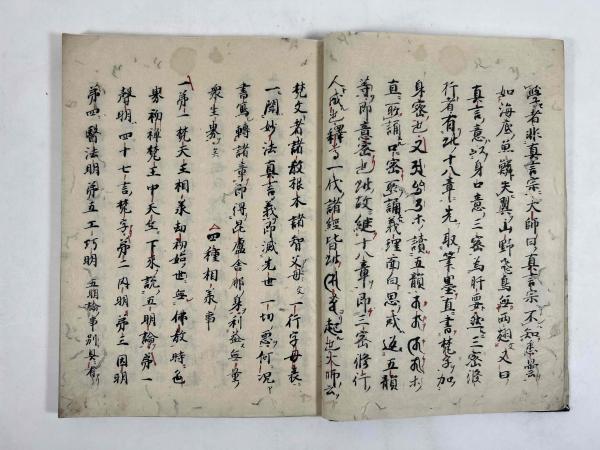 學者非真言宗大師曰真言宗不知悉曇
如海底魚鱗失翼山野飛鳥無兩翅文又曰
真言意以身口意三密為肝要三密修
行者有此十八章先取筆墨直書梵字加
身密也又讀五韻
直誦口密誦義理而思惟五韻
等即意密也故継十八章即三密修行
人成也釋尊一代諸經皆此起也大師云
梵文者諸教根本諸智父母文一行字母表
一聞妙法真言義即滅先世一切惡何況
書寫轉諸章即得毘盧舍那身利益無量
衆生界文
四種相承事
一第一梵天王相承劫初始世無佛教時色
界初禅梵王中天竺下来說五明論第一
聲明四十七言梵字第二内明第三因明
第四醫法明第五工巧明 五明論事別具有